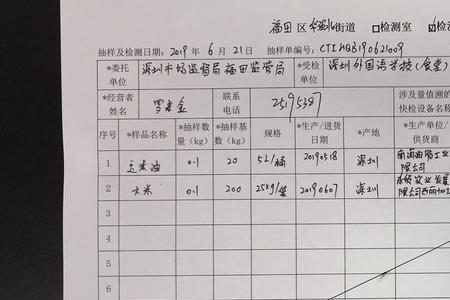 福田区华强北街道 □检测室
抽样及检测日期：2019年6月21日 抽样单编号：CTIHQB190621009
*委托单位 深圳市场监督局福田监管局 *受检单位 深圳外国语学校(食堂)
*经营者姓名 罗 金 联系电话 25195387 涉及量值溯的快检设备名称
序号 *样品名称 *抽样数量（kg） *抽样基数（kg） 规格 *生产/进货日期 *产地 *生产单位/供货商
1 玉米油 0.1 20 5L/桶 20190518 深圳 南海油脂工业 限公司
2 大米 0.1 200 25kg/袋 20190607 深圳 农业发展 限公司西丽加工
3
4
5
6